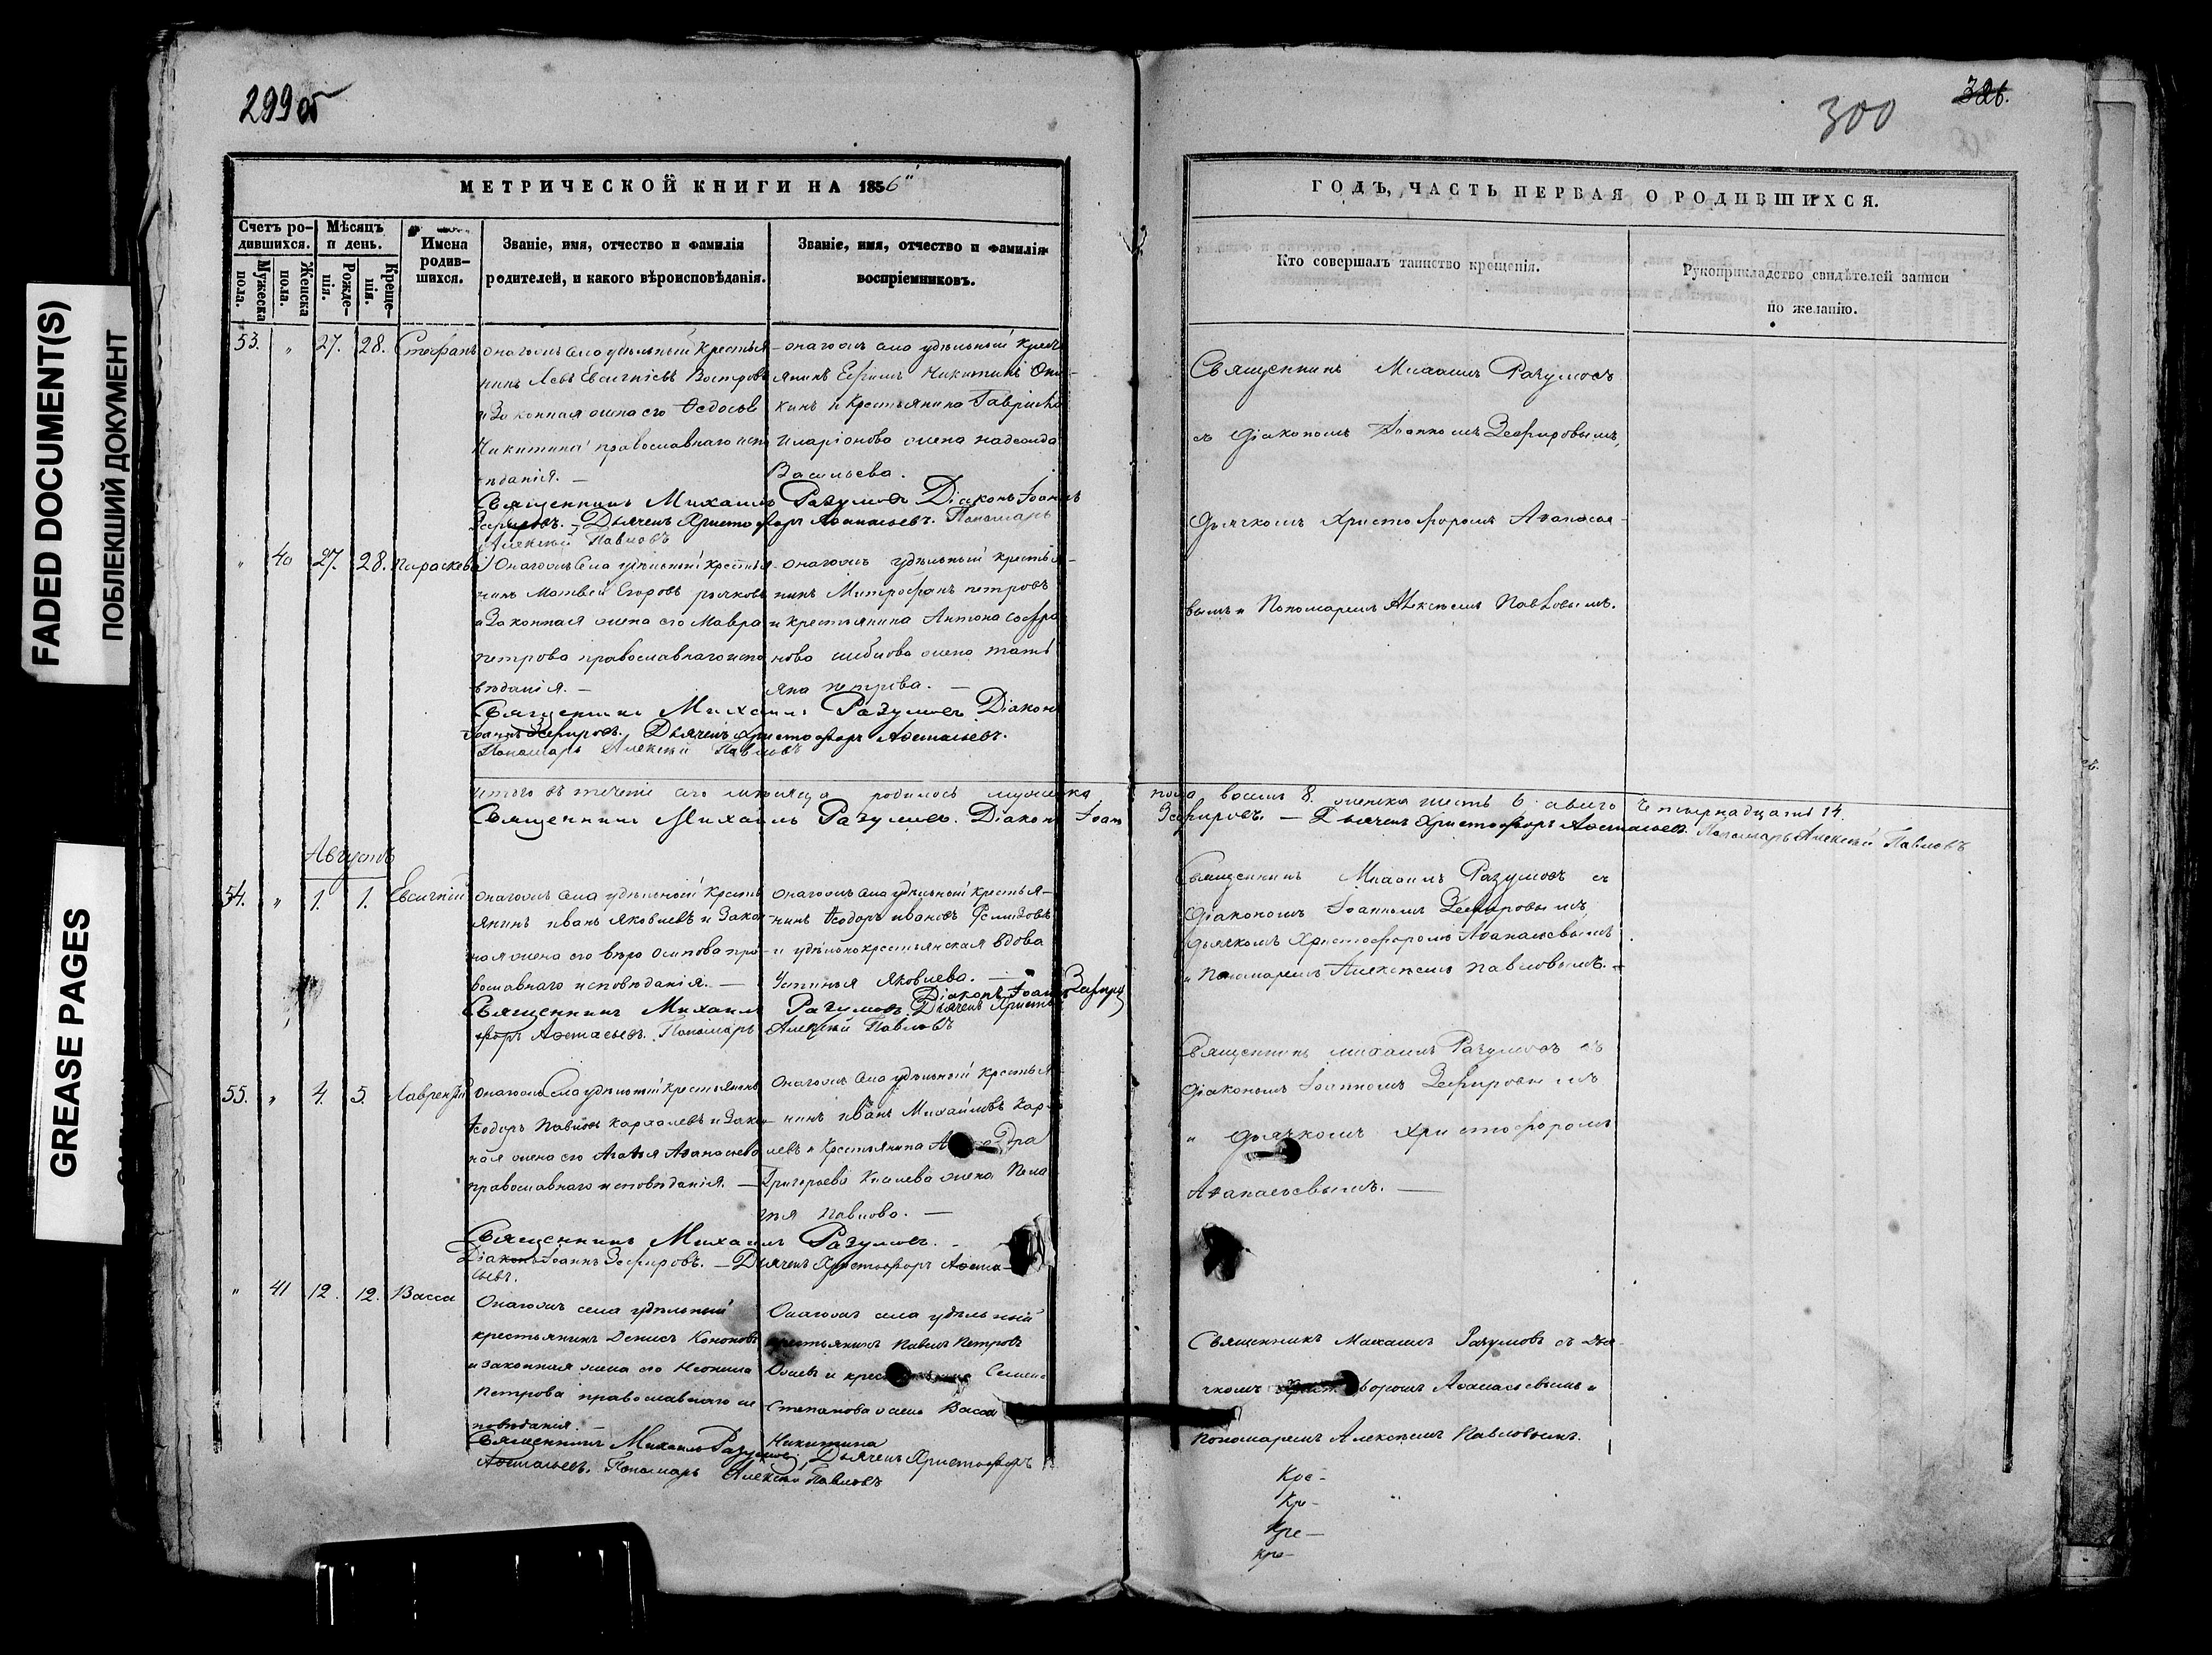 299 об
300
326.
FADED DOCUMENT(S)
ПОБЛЕКШИЙ ДОКУМЕНТ
GREASE PAGES
МЕТРИЧЕСКОЙ КНИГИ НА 1856
Счетъ ро-
дившихся.
Мужеска
пола.
Женска
пола.
Мѣсяцъ
и день.
Рожде-
нія.
Креще-
нія.
Имена
родив-
шихся.
Званіе, имя, отчество и фамилія
родителей, и какого вѣроисповѣданія.
Званіе, имя, отчество и фамилія
воспріемниковъ.
53. " 27. 28. Стефанъ
онагожъ села удѣльный крестья-
нинъ Левъ Евсигнѣевъ
и законная жена его Ѳедосья
Никитина православнаго испо
вѣданія. —
онагожъ села удѣльный крест
янинъ Ефимъ Никитинъ
кинъ и крестьянина Гаврила
Иларіонова жена надежда
Васильева.
Священникъ Михаилъ Разумовъ Діаконъ Іоаннъ
Зефировъ. — Дьячекъ Христофоръ Аѳанасьевъ. Пономарь
Алексѣй Павловъ
" 40 27. 28. Параскева
Онагожъ села удѣльный крестья-
нинъ Матвей Егоровъ
и законная жена его Мавра
петрова православнаго испо
вѣданія. —
онагожъ удѣльный крестья-
нинъ Митрофанъ петровъ
и крестьянина Антона софро
нова жена тать
яна петрова. —
Священникъ Михаилъ Разумовъ Діаконъ
Іоаннъ Зефировъ. Дьячекъ Христофоръ Аѳанасьевъ.
Пономарь Алексѣй Павловъ
итого въ теченіе сего мѣсяца родилось мужеска пола восемь 8. женска шесть 6 а всего четырнадцать 14.
Священникъ Михаилъ Разумовъ. Діаконъ Іоан Зефировъ. — Дьячекъ Христофоръ Аѳанасьевъ. Пономарь Алексѣй Павловъ
Августъ
54. " 1. 1. Евсигній
онагожъ села удѣльный кресть
янинъ иванъ Яковлевъ и закон
ная жена его вера осипова пра-
вославнаго исповѣданія. —
Онагожъ села удѣльный крестья-
нинъ Ѳеодоръ ивановъ
и удѣльнокрестьянская вдова
Устинья Яковлева. —
Священникъ Михаилъ Разумовъ. Діаконъ Іоаннъ Зефир
Дьячекъ Христо
форъ Аѳанасьевъ. Пономарь Алексѣй Павловъ
55. " 4. 5. Лаврентій
Онагожъ села удѣльный крестьянинъ
Ѳеодоръ Павловъ и закон
ная жена его Агафья Аѳанасьева
православнаго исповѣданія. —
Онагожъ села удѣльный крестья
нинъ иванъ Михайловъ
левъ и крестьянина
Григорьева жена Пела
гея Павлова. —
Священникъ Михаилъ Разумовъ. —
Діаконъ Іоаннъ Зефировъ. — Дьячекъ Христофоръ Аѳана-
сьевъ.
" 41 12. 12. Васса
Онагожъ села удѣльный
крестьянинъ Денисъ Кононовъ
и законная жена его Неонила
Петрова православнаго ис
повѣданія. —
Онагожъ села удѣльный
крестьянинъ Павелъ Петровъ
Семена
Степанова жена Васса
Никитина
Священникъ Михаилъ Разумовъ, Дьячекъ Христофоръ
Аѳанасьевъ. Пономарь Алексѣй Павловъ
ГОДЪ, ЧАСТЬ ПЕРВАЯ О РОДИВШИХСЯ.
Кто совершалъ таинство крещенія.
Рукоприкладство свидѣтелей записи
по желанію.
Священникъ Михаилъ Разумовъ
съ Діакономъ Іоанномъ Зефировымъ,
Дьячкомъ Христофоромъ Аѳанасье-
вымъ и Пономаремъ Алексѣемъ Павловымъ.
Священникъ Михаилъ Разумовъ съ
Діакономъ Іоанномъ Зефировымъ,
Дьячкомъ Христофоромъ Аѳанасьевымъ
и Пономаремъ Алексѣемъ Павловымъ. —
Священникъ михаилъ Разумовъ съ
Діакономъ Іоанномъ Зефировымъ
и Дьячкомъ Христофоромъ
Аѳанасьевымъ. —
Священникъ Михаилъ Разумовъ съ Дья-
чкомъ Христофоромъ Аѳанасьевымъ и
Пономаремъ Алексѣемъ Павловымъ.
Кре-
Кр-
Кре—
кре-